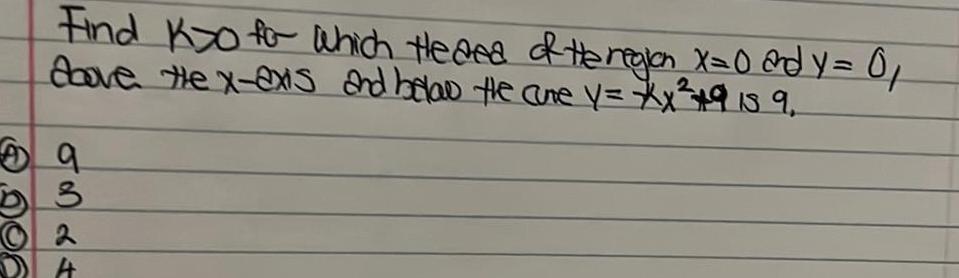 Find K>0 for which the area of the region x=0 and y=0,
above the x-axis and below the curve y=-Kx²+9 is 9.
A 9
B 3
C 2
D 4